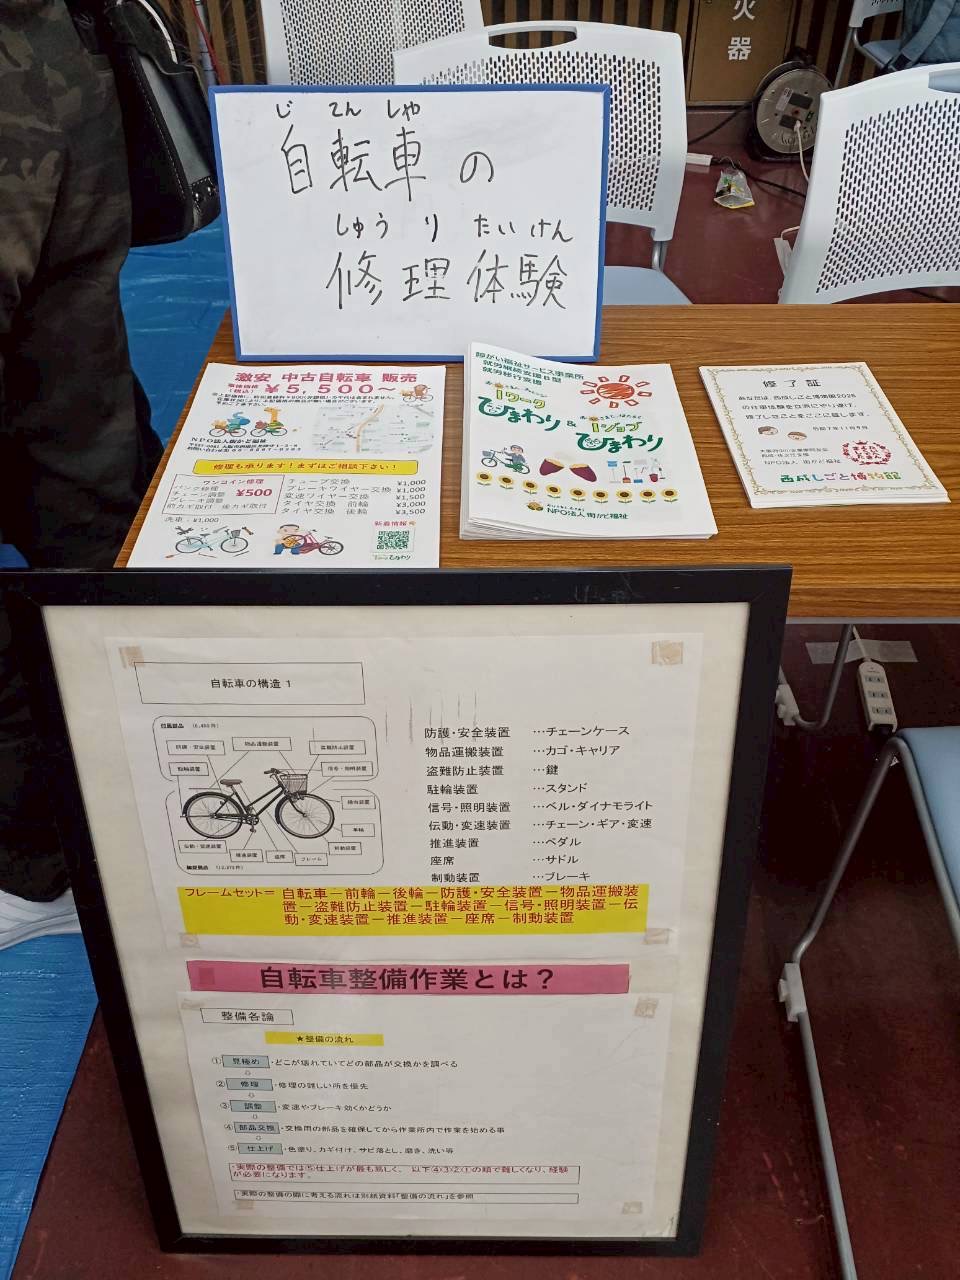 火
器
じ てん しゃ
自転車の
しゅう り たい けん
修理体験
激安 中古自転車 販売
車体価格
(税込)
¥5,500〜
NPO法人街かど福祉
修理も承ります！まずはご相談下さい！
ワンコイン修理
パンク修理
チェーン調整
ブレーキ調整
前カギ取付 後カギ取付
¥500
チューブ交換 ¥1,000
ブレーキワイヤー交換 ¥1,000
変速ワイヤー交換 ¥1,500
タイヤ交換 前輪 ¥3,000
タイヤ交換 後輪 ¥3,500
洗車：¥1,000
新着情報
ひまわり
障がい福祉サービス事業所
就労継続支援B型
就労移行支援
iワーク
ひまわり
&
iジョブ
ひまわり
NPO法人 街かど福祉
修了証
NPO法人 街かど福祉
西成しごと博物館
自転車の構造 1
防護・安全装置
物品運搬装置
盗難防止装置
駐輪装置
信号・照明装置
車輪
伝動・変速装置
推進装置
座席
フレーム
制動装置
防護・安全装置 …チェーンケース
物品運搬装置 …カゴ・キャリア
盗難防止装置 …鍵
駐輪装置 …スタンド
信号・照明装置 …ベル・ダイナモライト
伝動・変速装置 …チェーン・ギア・変速
推進装置 …ペダル
座席 …サドル
制動装置 …ブレーキ
フレームセット＝ 自転車－前輪－後輪－防護・安全装置－物品運搬装
置－盗難防止装置－駐輪装置－信号・照明装置－伝
動・変速装置－推進装置－座席－制動装置
自転車整備作業とは？
整備各論
★整備の流れ
① 見極め ・どこが壊れていてどの部品が交換かを調べる
② 修理 ・修理の難しい所を優先
③ 調整 ・変速やブレーキ効くかどうか
④ 部品交換 ・交換用の部品を確保してから作業所内で作業を始める事
⑤ 仕上げ ・色塗り、カギ付け、サビ落とし、磨き、洗い等
・実際の整備では⑤仕上げが最も易しく、以下④③②①の順で難しくなり、経験
が必要になります。
・実際の整備の際に考える流れは別紙資料「整備の流れ」を参照